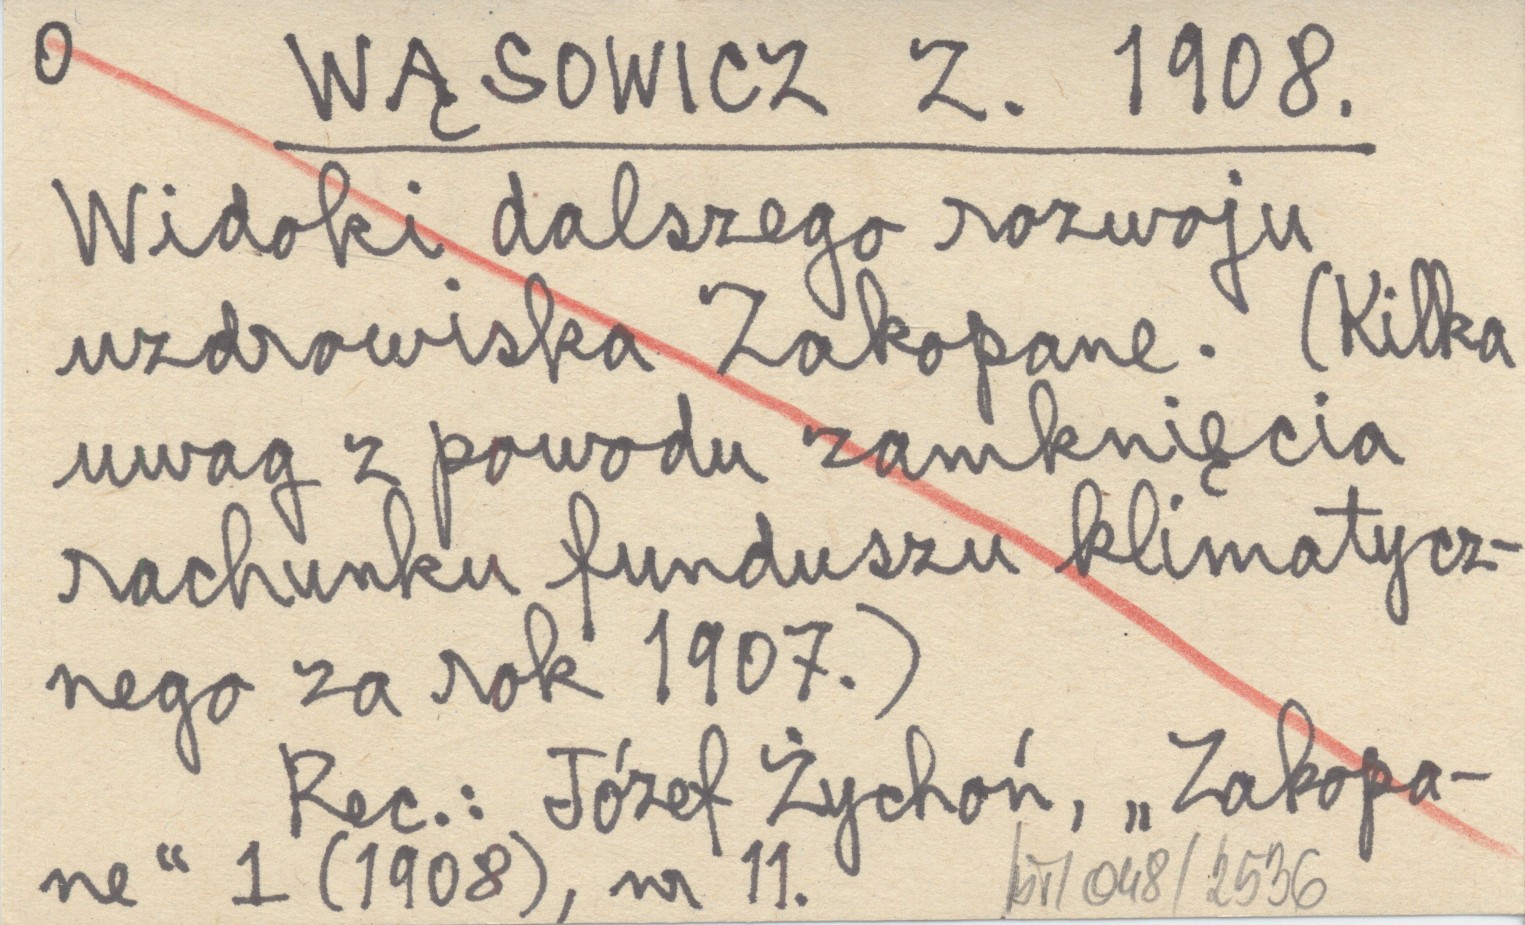 O WĄSOWICZ Z. 1908.
Widoki dalszego rozwoju
uzdrowiska Zakopane. (Kilka
uwag z powodu zamknięcia
rachunku funduszu klimatycz-
nego za rok 1907.)
Rec.: Józef Żychoń, „Zakopa-
ne“ 1 (1908), nr 11. /048/2536